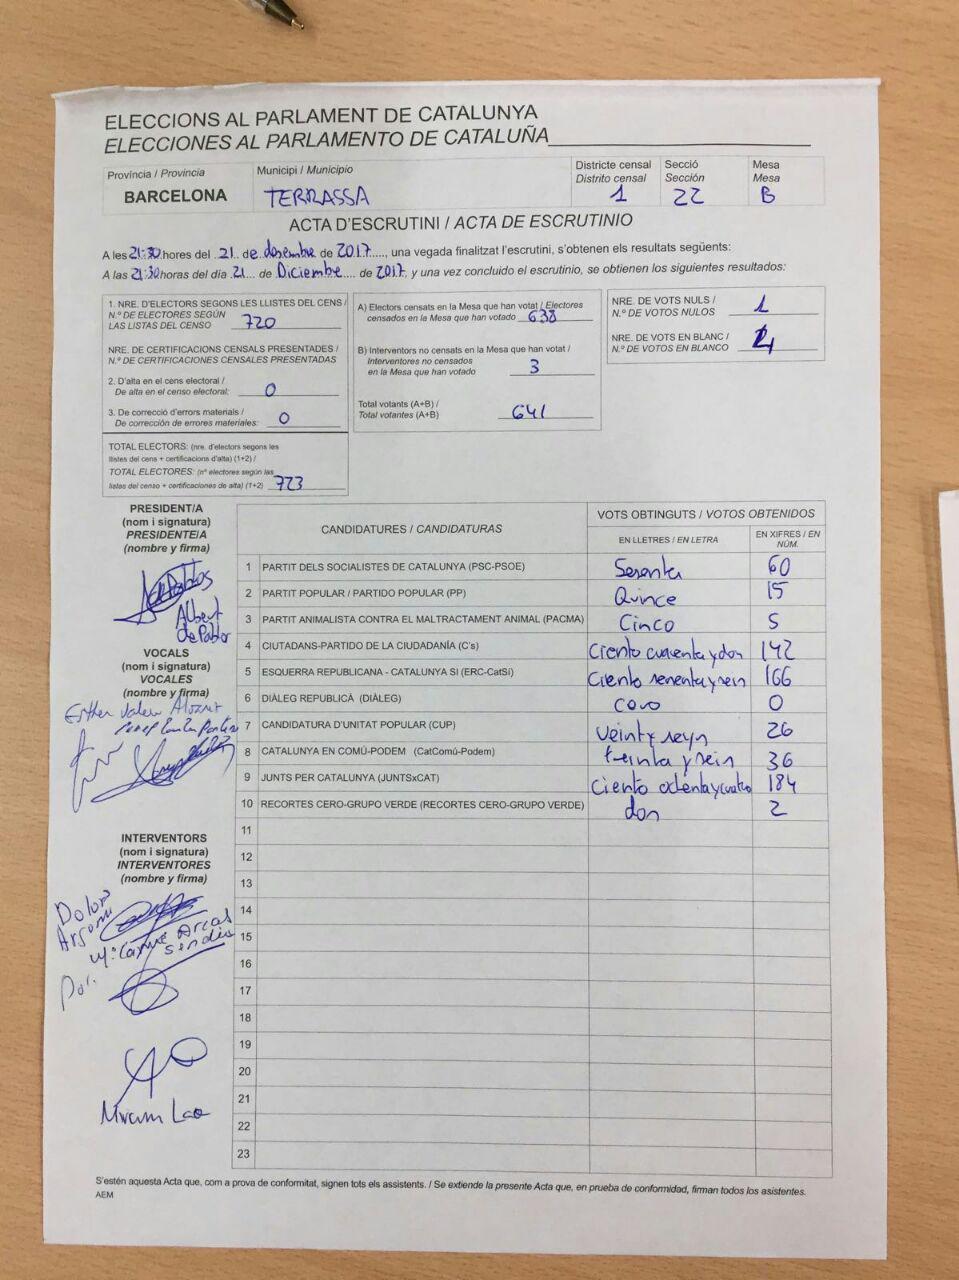 ELECCIONS AL PARLAMENT DE CATALUNYA
ELECCIONES AL PARLAMENTO DE CATALUÑA
Província / Provincia
BARCELONA
Municipi / Municipio
TERRASSA
Districte censal
Distrito censal
1
Secció
Sección
22
Mesa
Mesa
B
ACTA D'ESCRUTINI / ACTA DE ESCRUTINIO
A les 21:30 hores del 21 de desembre de 2017, una vegada finalitzat l'escrutini, s'obtenen els resultats següents:
A las 21:30 horas del día 21 de Diciembre de 2017, y una vez concluido el escrutinio, se obtienen los siguientes resultados:
1. NRE. D'ELECTORS SEGONS LES LLISTES DEL CENS /
N.º DE ELECTORES SEGÚN
LAS LISTAS DEL CENSO 720
NRE. DE CERTIFICACIONS CENSALS PRESENTADES /
N.º DE CERTIFICACIONES CENSALES PRESENTADAS
2. D'alta en el cens electoral /
De alta en el censo electoral: 0
3. De correcció d'errors materials /
De corrección de errores materiales: 0
TOTAL ELECTORS: (nre. d'electors segons les
llistes del cens + certificacions d'alta) (1+2) /
TOTAL ELECTORES: (nº electores según las
listas del censo + certificaciones de alta) (1+2) 723
A) Electors censats en la Mesa que han votat / Electores
censados en la Mesa que han votado 638
B) Interventors no censats en la Mesa que han votat /
Interventores no censados
en la Mesa que han votado 3
Total votants (A+B) /
Total votantes (A+B) 641
NRE. DE VOTS NULS /
N.º DE VOTOS NULOS 1
NRE. DE VOTS EN BLANC /
N.º DE VOTOS EN BLANCO 4
PRESIDENT/A
(nom i signatura)
PRESIDENTE/A
(nombre y firma)
Albert
de Pablos
VOCALS
(nom i signatura)
VOCALES
(nombre y firma)
Esther
INTERVENTORS
(nom i signatura)
INTERVENTORES
(nombre y firma)
Mª Carme Arcas
Lao
CANDIDATURES / CANDIDATURAS
VOTS OBTINGUTS / VOTOS OBTENIDOS
EN LLETRES / EN LETRA
EN XIFRES / EN NÚM.
1 PARTIT DELS SOCIALISTES DE CATALUNYA (PSC-PSOE) Sesenta 60
2 PARTIT POPULAR / PARTIDO POPULAR (PP) Quince 15
3 PARTIT ANIMALISTA CONTRA EL MALTRACTAMENT ANIMAL (PACMA) Cinco 5
4 CIUTADANS-PARTIDO DE LA CIUDADANÍA (C's) Ciento cuarenta y dos 142
5 ESQUERRA REPUBLICANA - CATALUNYA SI (ERC-CatSi) Ciento sesenta y seis 166
6 DIÀLEG REPUBLICÀ (DIÀLEG) cero 0
7 CANDIDATURA D'UNITAT POPULAR (CUP) Veinty seys 26
8 CATALUNYA EN COMÚ-PODEM (CatComú-Podem) treinta y seis 36
9 JUNTS PER CATALUNYA (JUNTSxCAT) Ciento ochenta y cuatro 184
10 RECORTES CERO-GRUPO VERDE (RECORTES CERO-GRUPO VERDE) dos 2
11
12
13
14
15
16
17
18
19
20
21
22
23
S'estén aquesta Acta que, com a prova de conformitat, signen tots els assistents. / Se extiende la presente Acta que, en prueba de conformidad, firman todos los asistentes.
AEM